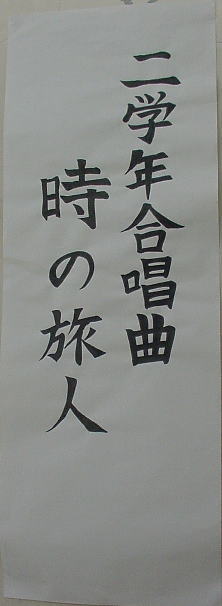 二学年合唱曲
時の旅人